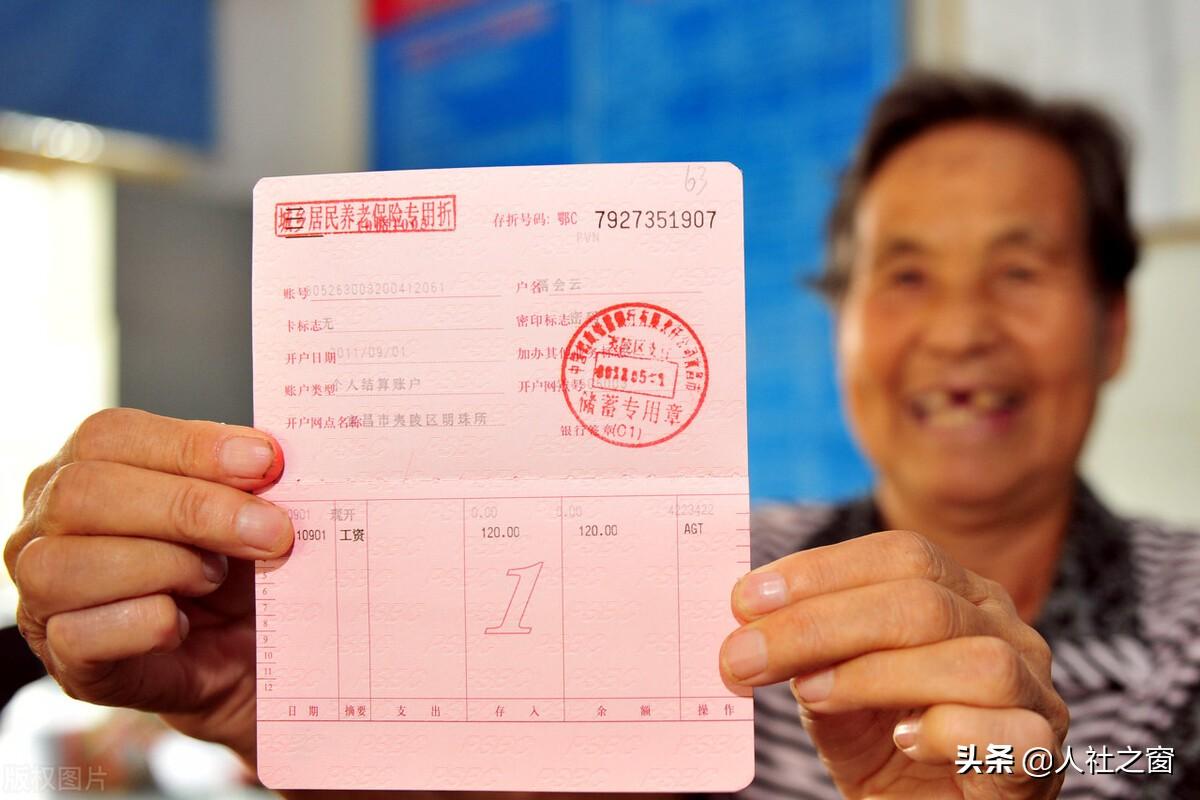 63
城乡居民养老保险专用折
存折号码: 鄂C 7927351907
PVN
账号 605263003200412061
户名
会云
卡标志 无
密印标志
开户日期 2011/09/01
账户类型 个人结算账户
开户网点名称 宜昌市夷陵区明珠所
夷陵区支行
储蓄专用章
银行签章(01)
0901 开 0.00 0.00 4223422
10901 工资 120.00 120.00 AGT
5
6
7
8
9
10
11
12
1
日期 摘要 支出 存入 余额 操作
版权图片
头条 @人社之窗